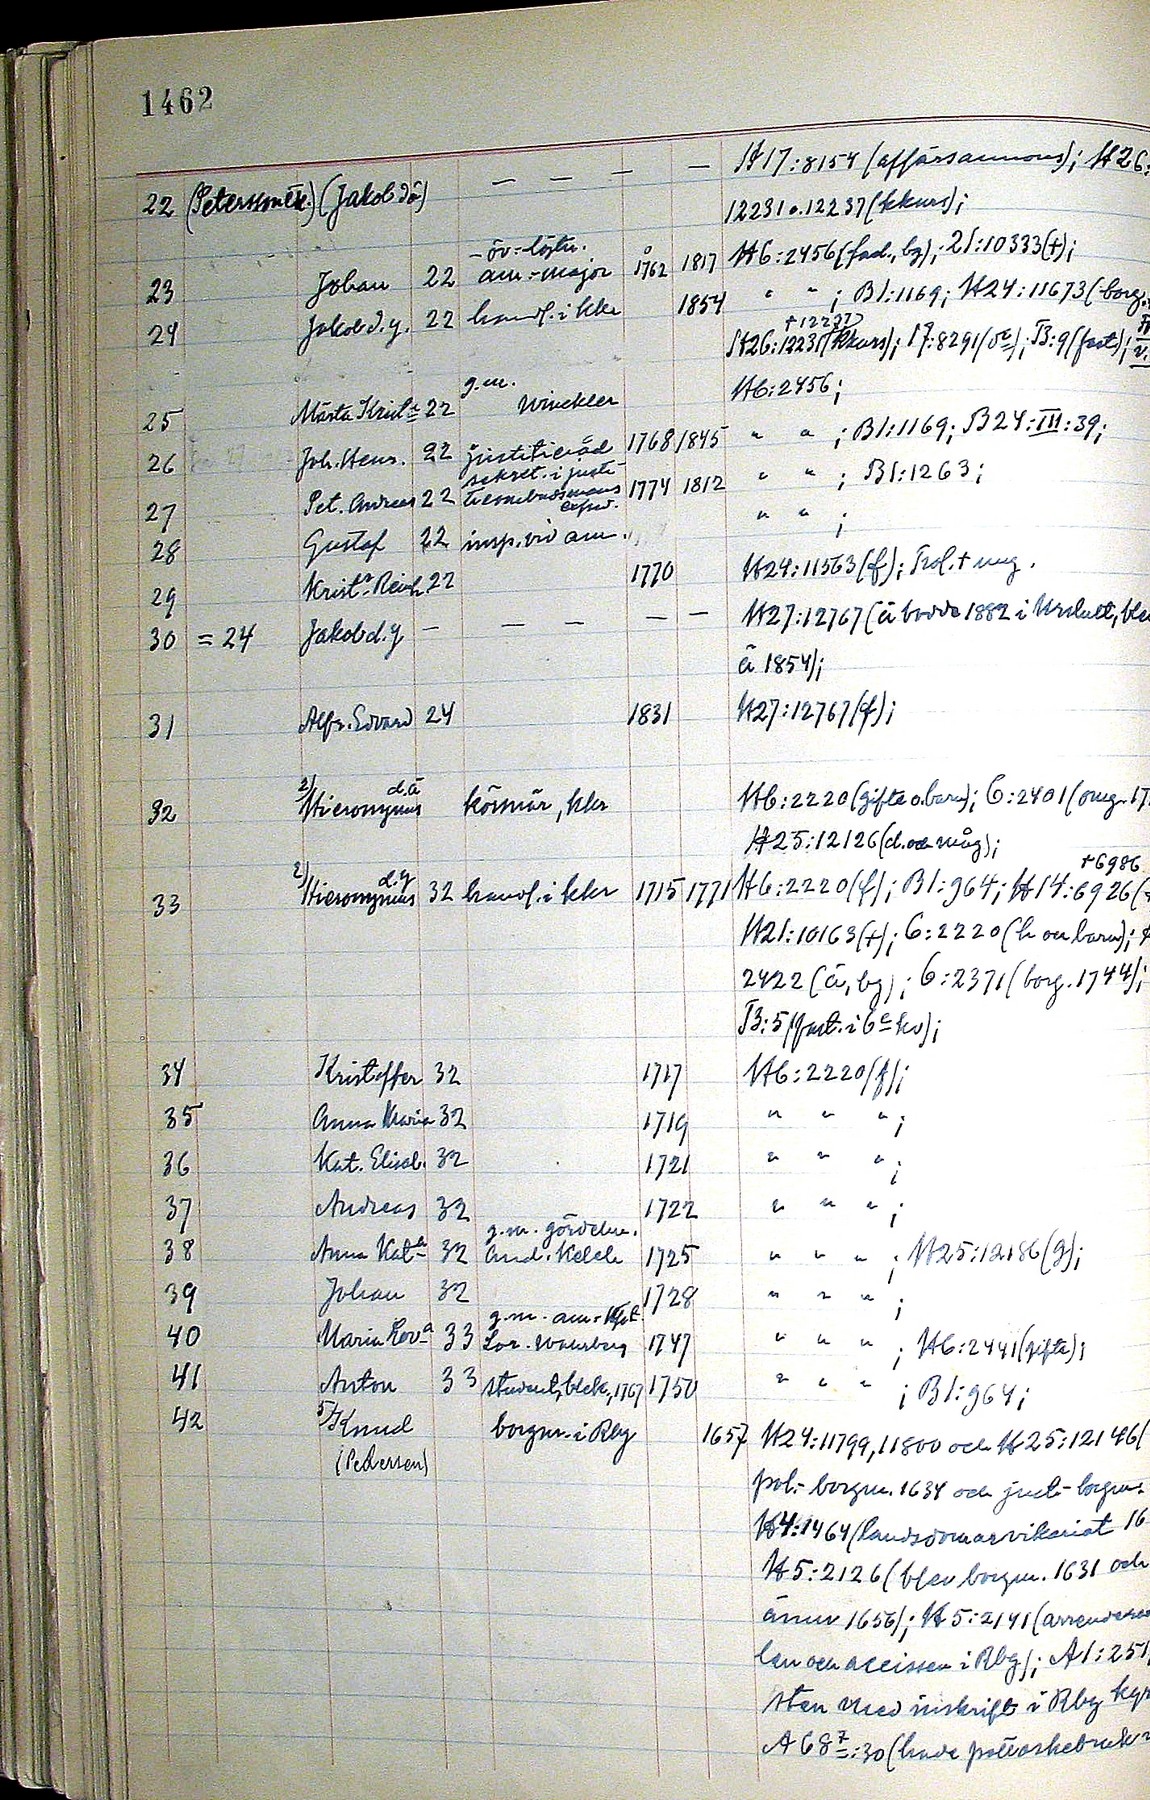 1462
22 (Peterssonék.) (Jakob dä) — — — — — H17:8154 (affärsannons); H26:
12231 o. 12237 (kkurs);
- öv-löjtn.
23 Johan 22 am-major 1762 1817 H6:2456 (fad., bg); 21:10333 (+);
24 Jakob d.y. 22 handl. i kkr 1854 " " ; B1:1169; H24:11673 (borg.
+12237
H26:12231 (kkurs); 17:8291 (d:o); B:9 (fast);
g.m.
25 Märta Krist:a 22 Winckler H6:2456;
26 Joh. Henr. 22 justitieråd 1768 1845 " " ; B1:1169; B24:III:39;
sekret. i justi-
27 Pet. Andreas 22 tieombudsmans 1774 1812 " " ; B1:1263;
exped.
28 Gustaf 22 insp. vid am. " " ;
29 Krist:a Reinh. 22 1770 H24:11563 (f); + ung.
30 = 24 Jakob d.y — — — — — H27:12767 (ä bodde 1882 i blev
ä 1854);
31 Alfr. Edvard 24 1831 H27:12767 (f);
2) d.ä
32 Hieronymus körsnär, kkr H6:2220 (gifte o. barn); 6:2401 (omg. 17
H25:12126 (d. och måg);
2) d.y +6986
33 Hieronymus 32 handl. i kkr 1715 1771 H6:2220 (f); B1:964; H14:6926 (
H21:10163 (+); 6:2220 (h och barn);
2422 (ä, bg); 6:2371 (borg. 1744);
B:5 (fast. i 6:e kv);
34 Kristoffer 32 1717 H6:2220 (f);
35 Anna Maria 32 1719 " " " ;
36 Kat. Elisab. 32 1721 " " " ;
37 Andreas 32 1722 " " " ;
g.m. gördelm.
38 Anna Kat:a 32 And. Kelch 1725 " " " ; H25:12186 (g);
39 Johan 32 1728 " " " ;
g.m. am-kpt.
40 Maria Lov:a 33 Lor. 1747 " " " ; H6:2441 (gifta);
41 Anton 33 student, blek, 1767 1750 " " " ; B1:964;
42 5) Knud borgm. i Rby 1657 H24:11799, 11800 och H25:12146 (
(Pedersen) pol.-borgm. 1634 och just-borgm.
H4:1464 (landsdomarvikariat 16
H5:2126 (blev borgm. 1631 och
ännu 1656); H5:2141 (arrenderade
len och accissen i Rby); A1:251
sten med inskrift i Rby kyr
A68 7:30 (hade pottaskebruk